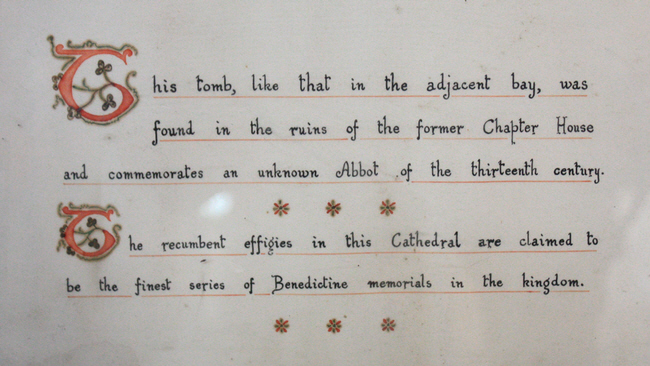 This tomb, like that in the adjacent bay, was
found in the ruins of the former Chapter House
and commemorates an unknown Abbot of the thirteenth century.
The recumbent effigies in this Cathedral are claimed to
be the finest series of Benedictine memorials in the kingdom.